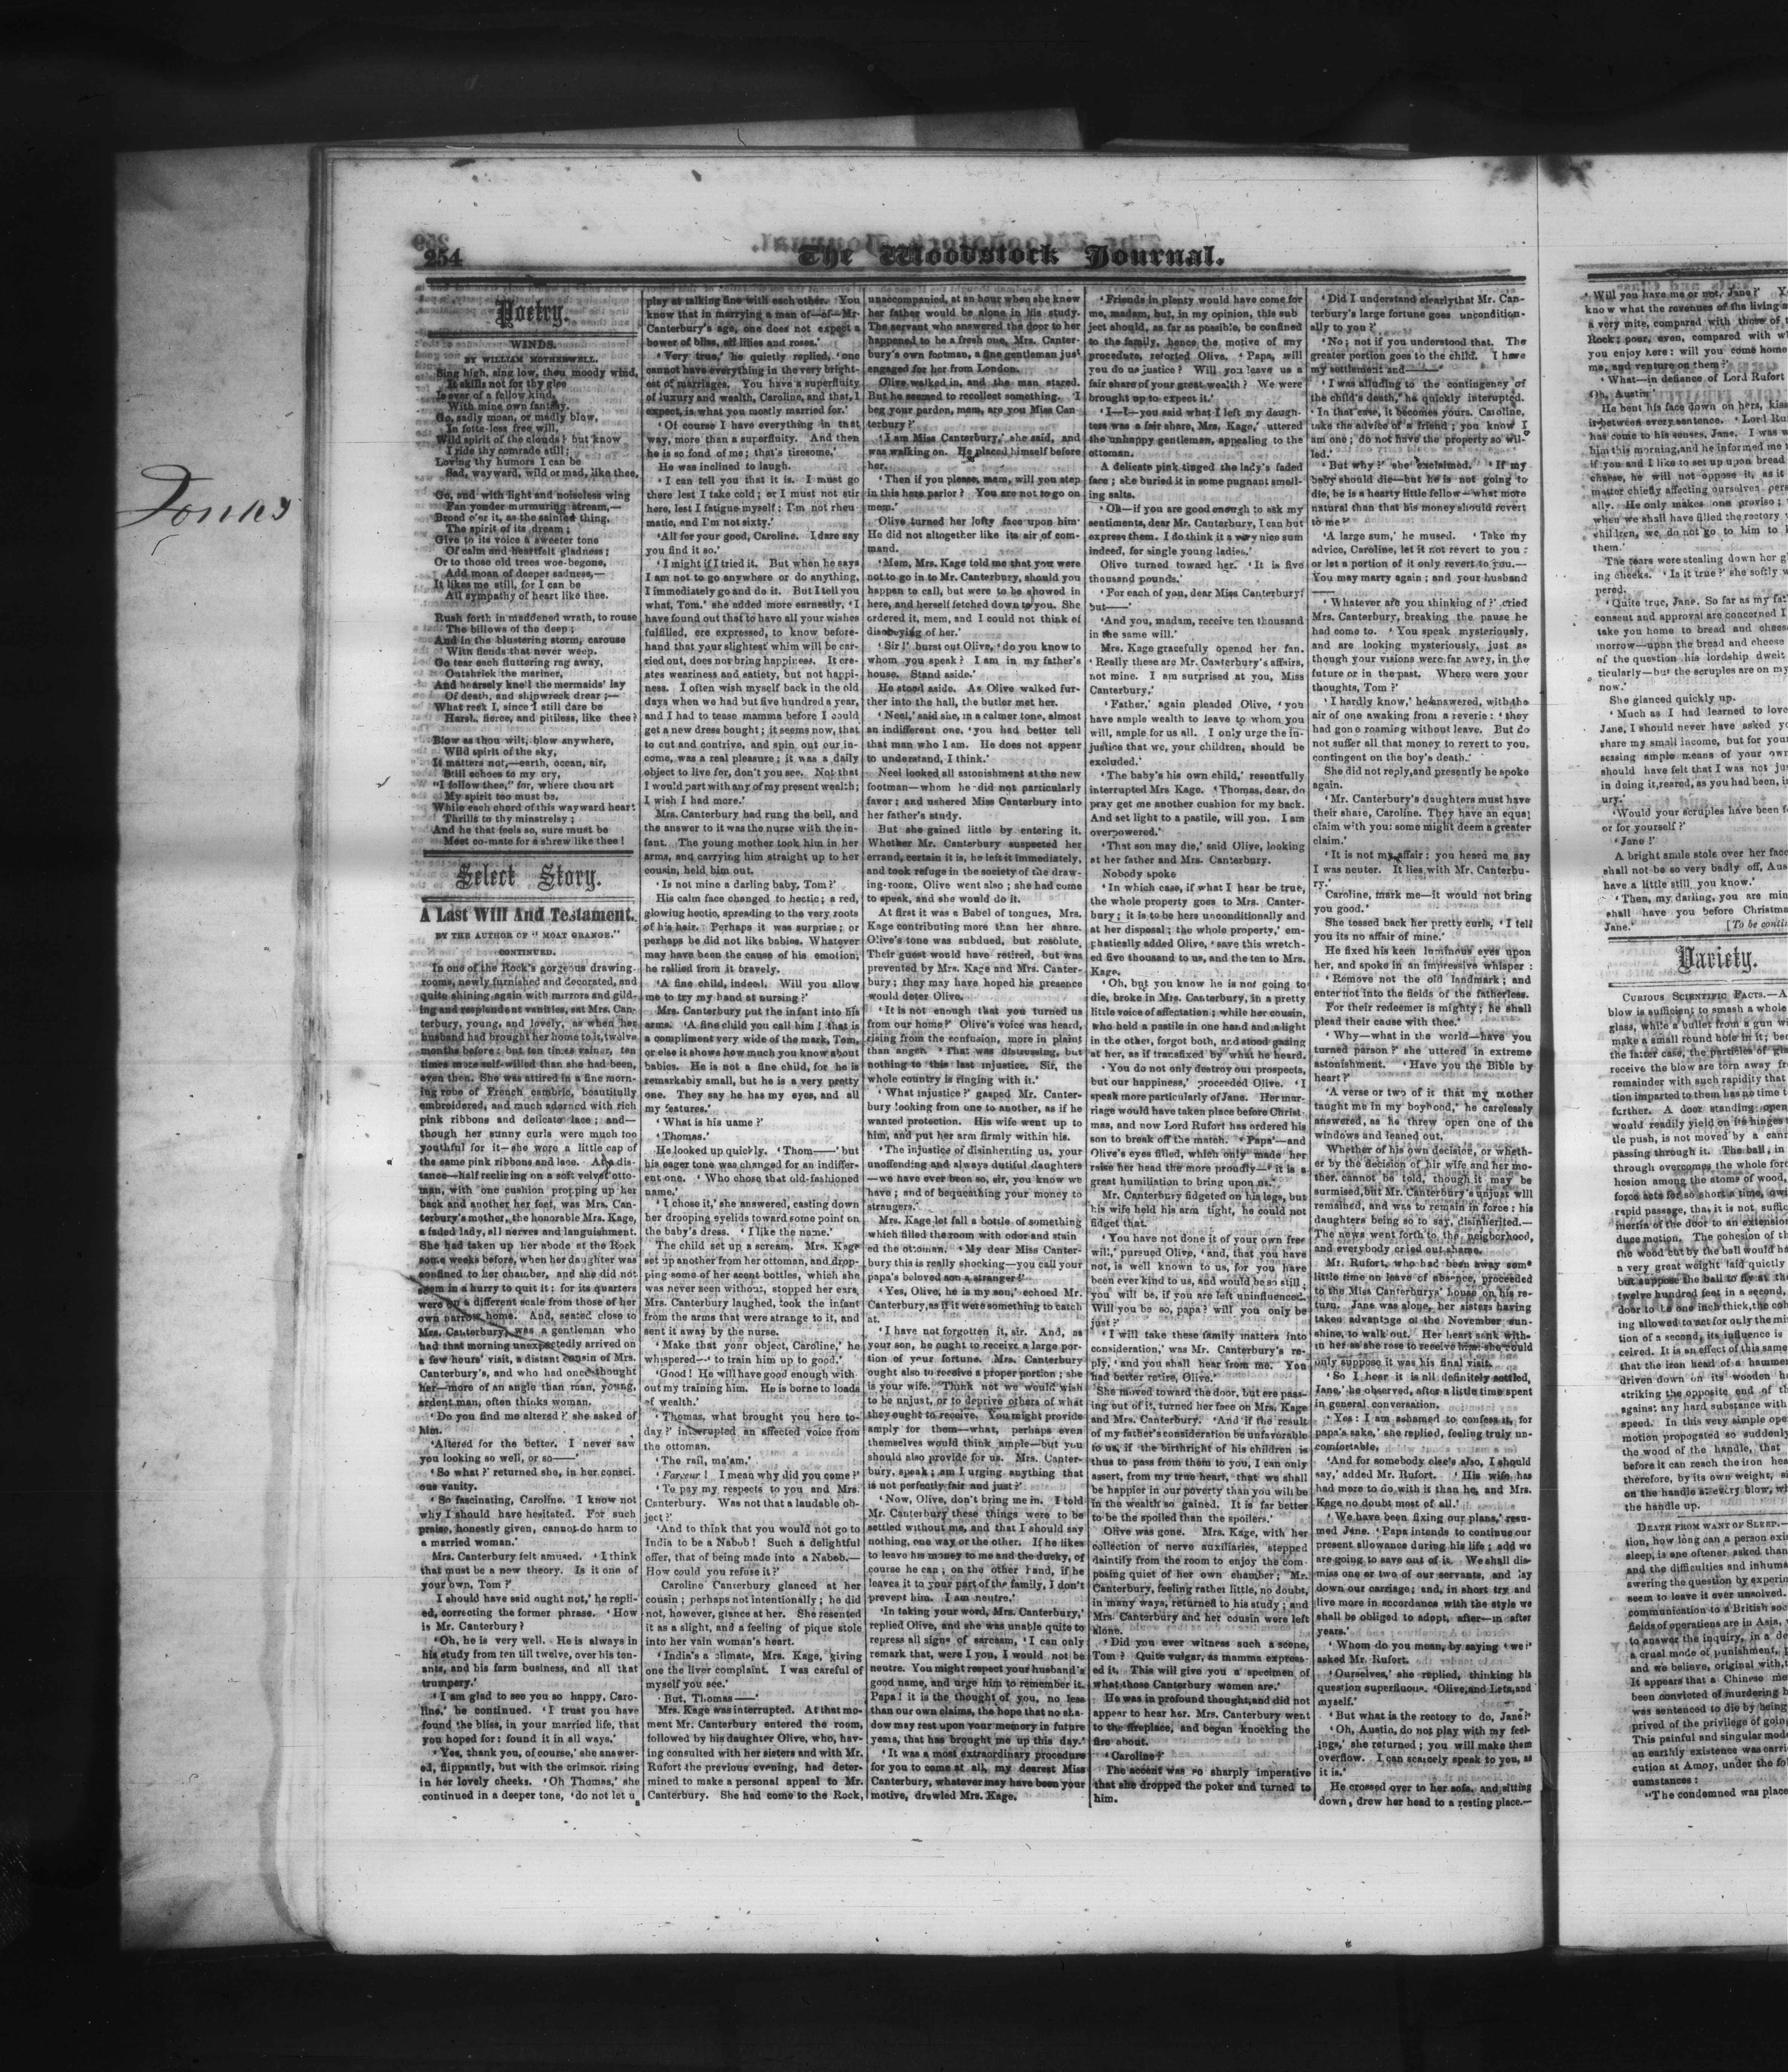 Jones
254
The Woodstock Journal.
Poetry.
WINDS.
BY WILLIAM MOTHERWELL.
Sing high, sing low, thou moody wind,
It skills not for thy glee
Is ever of a fellow kind,
With mine own fantasy.
Go, sadly moan, or madly blow,
In fette-less free will,
Wild spirit of the clouds! but know
I ride thy comrade still;
Loving thy humors I can be
Sad, wayward, wild or mad, like thee.
Go, and with light and noiseless wing
Fan yonder murmuring stream,—
Brood o'er it, as the sainted thing,
The spirit of its dream;
Give to its voice a sweeter tone
Of calm and heartfelt gladness;
Or to those old trees woe-begone,
Add moan of deeper sadness,—
It likes me still, for I can be
All sympathy of heart like thee.
Rush forth in maddened wrath, to rouse
The billows of the deep;
And in the blustering storm, carouse
With fiends that never weep.
Go tear each fluttering rag away,
Outshriek the mariner,
And hoarsely knell the mermaids' lay
Of death, and shipwreck drear;—
What reck I, since I still dare be
Harsh, fierce, and pitiless, like thee?
Blow as thou wilt, blow anywhere,
Wild spirit of the sky,
It matters not,—earth, ocean, air,
Still echoes to my cry,
"I follow thee," for, where thou art
My spirit too must be,
While each chord of this wayward heart
Thrills to thy minstrelsy;
And he that feels so, sure must be
Meet co-mate for a shrew like thee!
Select Story.
A Last Will And Testament.
BY THE AUTHOR OF "MOAT GRANGE."
CONTINUED.
In one of the Rock's gorgeous drawing-
rooms, newly furnished and decorated, and
quite shining again with mirrors and gild-
ing and resplendent vanities, sat Mrs. Can-
terbury, young, and lovely, as when her
husband had brought her home to it, twelve
months before: but ten times vainer, ten
times more self-willed than she had been,
even then. She was attired in a fine morn-
ing robe of French cambric, beautifully
embroidered, and much adorned with rich
pink ribbons and delicate lace; and—
though her sunny curls were much too
youthful for it—she wore a little cap of
the same pink ribbons and lace. At a dis-
tance—half reclining on a soft velvet otto-
man, with one cushion propping up her
back and another her feet, was Mrs. Can-
terbury's mother, the honorable Mrs. Kage,
a faded lady, all nerves and languishment.
She had taken up her abode at the Rock
some weeks before, when her daughter was
confined to her chamber, and she did not
seem in a hurry to quit it: for its quarters
were on a different scale from those of her
own narrow home. And, seated close to
Mrs. Canterbury, was a gentleman who
had that morning unexpectedly arrived on
a few hours' visit, a distant cousin of Mrs.
Canterbury's, and who had once thought
her—more of an angle than man, young,
ardent man, often thinks woman.
'Do you find me altered?' she asked of
him.
'Altered for the better. I never saw
you looking so well, or so——'
'So what?' returned she, in her consci-
ous vanity.
'So fascinating, Caroline. I know not
why I should have hesitated. For such
praise, honestly given, cannot do harm to
a married woman.'
Mrs. Canterbury felt amused. 'I think
that must be a new theory. Is it one of
your own, Tom?'
I should have said ought not,' he repli-
ed, correcting the former phrase. 'How
is Mr. Canterbury?
'Oh, he is very well. He is always in
his study from ten till twelve, over his ten-
ants, and his farm business, and all that
trumpery.'
'I am glad to see you so happy, Caro-
line,' be continued. 'I trust you have
found the bliss, in your married life, that
you hoped for: found it in all ways.'
'Yes, thank you, of course,' she answer-
ed, flippantly, but with the crimson rising
in her lovely cheeks. 'Oh Thomas,' she
continued in a deeper tone, 'do not let u
play at talking fine with each other. You
know that in marrying a man of—of—Mr
Canterbury's age, one does not expect a
bower of bliss, all lilies and roses.'
'Very true,' he quietly replied, 'one
cannot have everything in the very bright-
est of marriages. You have a superfluity
of luxury and wealth, Caroline, and that, I
expect, is what you mostly married for.'
'Of course I have everything in that
way, more than a superfluity. And then
he is so fond of me; that's tiresome.'
He was inclined to laugh.
'I can tell you that it is. I must go
there lest I take cold; or I must not stir
here, lest I fatigue myself; I'm not rheu
matic, and I'm not sixty.'
'All for your good, Caroline. I dare say
you find it so.'
'I might if I tried it. But when he says
I am not to go anywhere or do anything,
I immediately go and do it. But I tell you
what, Tom.' she added more earnestly, 'I
have found out that to have all your wishes
fulfilled, ere expressed, to know before-
hand that your slightest whim will be car-
ried out, does not bring happiness. It cre-
ates weariness and satiety, but not happi-
ness. I often wish myself back in the old
days when we had but five hundred a year,
and I had to tease mamma before I could
get a new dress bought; it seems now, that
to cut and contrive, and spin out our in-
come, was a real pleasure; it was a daily
object to live for, don't you see. Not that
I would part with any of my present wealth;
I wish I had more.'
Mrs. Canterbury had rung the bell, and
the answer to it was the nurse with the in-
fant. The young mother took him in her
arms, and carrying him straight up to her
cousin, held him out.
'Is not mine a darling baby, Tom?'
His calm face changed to hectic; a red,
glowing hectic, spreading to the very roots
of his hair. Perhaps it was surprise; or
perhaps he did not like babies. Whatever
may have been the cause of his emotion,
he rallied from it bravely.
'A fine child, indeed. Will you allow
me to try my hand at nursing?'
Mrs. Canterbury put the infant into his
arms. 'A fine child you call him! that is
a compliment very wide of the mark, Tom,
or else it shows how much you know about
babies. He is not a fine child, for he is
remarkably small, but he is a very pretty
one. They say he has my eyes, and all
my features.'
'What is his name?'
'Thomas.'
He looked up quickly. 'Thom——' but
his eager tone was changed for an indiffer-
ent one. 'Who chose that old-fashioned
name.'
'I chose it,' she answered, casting down
her drooping eyelids toward some point on
the baby's dress. 'I like the name.'
The child set up a scream. Mrs. Kage
set up another from her ottoman, and drop-
ping some of her scent bottles, which she
was never seen without, stopped her ears,
Mrs. Canterbury laughed, took the infant
from the arms that were strange to it, and
sent it away by the nurse.
'Make that your object, Caroline,' he
whispered—'to train him up to good.'
'Good! He will have good enough with-
out my training him. He is borne to loads
of wealth.'
'Thomas, what brought you here to-
day?' interrupted an affected voice from
the ottoman.
'The rail, ma'am.'
'Farceur! I mean why did you come?'
'To pay my respects to you and Mrs.
Canterbury. Was not that a laudable ob-
ject?'
'And to think that you would not go to
India to be a Nabob! Such a delightful
offer, that of being made into a Nabob.—
How could you refuse it?'
Caroline Canterbury glanced at her
cousin; perhaps not intentionally; he did
not, however, glance at her. She resented
it as a slight, and a feeling of pique stole
into her vain woman's heart.
'India's a climate, Mrs. Kage, giving
one the liver complaint. I was careful of
myself you see.'
'But, Thomas——'
Mrs. Kage was interrupted. At that mo-
ment Mr. Canterbury entered the room,
followed by his daughter Olive, who, hav-
ing consulted with her sisters and with Mr.
Rufort the previous evening, had deter-
mined to make a personal appeal to Mr.
Canterbury. She had come to the Rock,
unaccompanied, at an hour when she knew
her father would be alone in his study.
The servant who answered the door to her
happened to be a fresh one, Mrs. Canter-
bury's own footman, a fine gentleman just
engaged for her from London.
Olive walked in, and the man stared.
But he seemed to recollect something. 'I
beg your pardon, mem, are you Miss Can
terbury?'
'I am Miss Canterbury,' she said, and
was walking on. He placed himself before
her.
'Then if you please, mem, will you step
in this here parlor? You are not to go on
mem.'
Olive turned her lofty face upon him
He did not altogether like its air of com-
mand.
'Mem, Mrs. Kage told me that you were
not to go in to Mr. Canterbury, should you
happen to call, but were to be showed in
here, and herself fetched down to you. She
ordered it, mem, and I could not think of
disobeying of her.'
'Sir!' burst out Olive, 'do you know to
whom you speak? I am in my father's
house. Stand aside.'
He stood aside. As Olive walked fur-
ther into the hall, the butler met her.
'Neel,' said she, in a calmer tone, almost
an indifferent one, 'you had better tell
that man who I am. He does not appear
to understand, I think.'
Neel looked all astonishment at the new
footman—whom he did not particularly
favor; and ushered Miss Canterbury into
her father's study.
But she gained little by entering it.
Whether Mr. Canterbury suspected her
errand, certain it is, he left it immediately,
and took refuge in the society of the draw-
ing-room. Olive went also; she had come
to speak, and she would do it.
At first it was a Babel of tongues, Mrs.
Kage contributing more than her share.
Olive's tone was subdued, but resolute.
Their guest would have retired, but was
prevented by Mrs. Kage and Mrs. Canter-
bury; they may have hoped his presence
would deter Olive.
'It is not enough that you turned us
from our home?' Olive's voice was heard,
rising from the confusion, more in plaint
than anger. 'That was distressing, but
nothing to this last injustice. Sir, the
whole country is ringing with it.'
'What injustice?' gasped Mr. Canter-
bury looking from one to another, as if he
wanted protection. His wife went up to
him, and put her arm firmly within his.
'The injustice of disinheriting us, your
unoffending and always dutiful daughters
—we have ever been so, sir, you know we
have; and of bequeathing your money to
strangers.'
Mrs. Kage let fall a bottle of something
which filled the room with odor and stain
ed the ottoman. 'My dear Miss Canter-
bury this is really shocking—you call your
papa's beloved son a stranger!'
'Yes, Olive, he is my son,' echoed Mr.
Canterbury, as if it were something to catch
at.
'I have not forgotten it, sir. And, as
your son, he ought to receive a large por-
tion of your fortune. Mrs. Canterbury
ought also to receive a proper portion; she
is your wife. Think not we would wish
to be unjust, or to deprive others of what
they ought to receive. You might provide
amply for them—what, perhaps even
themselves would think ample—but you
should also provide for us. Mrs. Canter-
bury, speak; am I urging anything that
is not perfectly fair and just?'
'Now, Olive, don't bring me in. I told
Mr. Canterbury these things were to be
settled without me, and that I should say
nothing, one way or the other. If he likes
to leave his money to me and the ducky, of
course he can; on the other hand, if he
leaves it to your part of the family, I don't
prevent him. I am neutre.'
'In taking your word, Mrs. Canterbury,'
replied Olive, and she was unable quite to
repress all signs of sarcasm, 'I can only
remark that, were I you, I would not be
neutre. You might respect your husband's
good name, and urge him to remember it.
Papa! it is the thought of you, no less
than our own claims, the hope that no sha-
dow may rest upon your memory in future
years, that has brought me up this day.'
'It was a most extraordinary procedure
for you to come at all, my dearest Miss
Canterbury, whatever may have been your
motive, drawled Mrs. Kage.
'Friends in plenty would have come for
me, madam, but, in my opinion, this sub
ject should, as far as possible, be confined
to the family, hence the motive of my
procedure, retorted Olive. 'Papa, will
you do us justice? Will you leave us a
fair share of your great wealth? We were
brought up to expect it.'
'I—I—you said what I left my daugh-
ters was a fair share, Mrs, Kage,' uttered
the unhappy gentleman, appealing to the
ottoman.
A delicate pink tinged the lady's faded
face; she buried it in some pugnant smell-
ing salts.
'Oh—if you are good enough to ask my
sentiments, dear Mr. Canterbury, I can but
express them. I do think it a very nice sum
indeed, for single young ladies.'
Olive turned toward her. 'It is five
thousand pounds.'
'For each of you, dear Miss Canterbury;
but——'
'And you, madam, receive ten thousand
in the same will.'
Mrs. Kage gracefully opened her fan.
'Really these are Mr. Canterbury's affairs,
not mine. I am surprised at you, Miss
Canterbury.'
'Father,' again pleaded Olive, 'you
have ample wealth to leave to whom you
will, ample for us all. I only urge the in-
justice that we, your children, should be
excluded.'
'The baby's his own child,' resentfully
interrupted Mrs Kage. 'Thomas, dear, do
pray get me another cushion for my back.
And set light to a pastile, will you. I am
overpowered.'
'That son may die,' said Olive, looking
at her father and Mrs. Canterbury.
Nobody spoke
'In which case, if what I hear be true,
the whole property goes to Mrs. Canter-
bury; it is to be hers unconditionally and
at her disposal; the whole property,' em-
phatically added Olive, 'save this wretch-
ed five thousand to us, and the ten to Mrs.
Kage.
'Oh, but you know he is not going to
die, broke in Mrs. Canterbury, in a pretty
little voice of affectation; while her cousin,
who held a pastile in one hand and a light
in the other, forgot both, and stood gazing
at her, as if transfixed by what he heard.
'You do not only destroy our prospects,
but our happiness,' proceeded Olive. 'I
speak more particularly of Jane. Her mar-
riage would have taken place before Christ
mas, and now Lord Rufort has ordered his
son to break off the match. 'Papa'—and
Olive's eyes filled, which only made her
raise her head the more proudly—'it is a
great humiliation to bring upon us.'
Mr. Canterbury fidgeted on his legs, but
his wife held his arm tight, he could not
fidget that.
'You have not done it of your own free
will,' pursued Olive, 'and, that you have
not, is well known to us, for you have
been ever kind to us, and would be so still;
you will be, if you are left uninfluenced.
Will you be so, papa? will you only be
just?'
'I will take these family matters into
consideration,' was Mr. Canterbury's re-
ply,' and you shall hear from me. You
had better retire, Olive.'
She moved toward the door, but ere pass-
ing out of it, turned her face on Mrs. Kage
and Mrs. Canterbury. 'And if the result
of my father's consideration be unfavorable
to us, if the birthright of his children is
thus to pass from them to you, I can only
assert, from my true heart, that we shall
be happier in our poverty than you will be
in the wealth so gained. It is far better
to be the spoiled than the spoilers.'
Olive was gone. Mrs. Kage, with her
collection of nerve auxiliaries, stepped
daintily from the room to enjoy the com-
posing quiet of her own chamber; Mr.
Canterbury, feeling rather little, no doubt,
in many ways, returned to his study; and
Mrs. Canterbury and her cousin were left
alone.
'Did you ever witness such a scene,
Tom? Quite vulgar, as mamma express-
ed it. This will give you a specimen of
what those Canterbury women are.'
He was in profound thought, and did not
appear to hear her. Mrs. Canterbury went
to the fireplace, and began knocking the
fire about.
'Caroline!'
The accent was so sharply imperative
that she dropped the poker and turned to
him.
'Did I understand clearly that Mr. Can-
terbury's large fortune goes uncondition-
ally to you?'
'No; not if you understood that. The
greater portion goes to the child. I have
my settlement and——'
'I was alluding to the contingency of
the child's death,' he quickly interupted.
'In that case, it becomes yours. Caroline,
take the advice of a friend; you know I
am one; do not have the property so wil-
led.'
'But why?' she exclaimed. 'If my
baby should die—but he is not going to
die, he is a hearty little fellow—what more
natural than that his money should revert
to me?'
'A large sum,' he mused. 'Take my
advice, Caroline, let it not revert to you:
or let a portion of it only revert to you.—
You may marry again; and your husband
—
'Whatever are you thinking of?' cried
Mrs. Canterbury, breaking the pause he
had come to. 'You speak mysteriously,
and are looking mysteriously, just as
though your visions were far away, in the
future or in the past. Where were your
thoughts, Tom?'
'I hardly know,' he answered, with the
air of one awaking from a reverie: 'they
had gone roaming without leave. But do
not suffer all that money to revert to you,
contingent on the boy's death.'
She did not reply, and presently he spoke
again.
'Mr. Canterbury's daughters must have
their share, Caroline. They have an equal
claim with you: some might deem a greater
claim.'
'It is not my affair: you heard me say
I was neuter. It lies with Mr. Canterbu-
ry.'
Caroline, mark me—it would not bring
you good.'
She tossed back her pretty curls, 'I tell
you its no affair of mine.'
He fixed his keen luminous eyes upon
her, and spoke in an impressive whisper:
'Remove not the old landmark; and
enter not into the fields of the fatherless.
For their redeemer is mighty; he shall
plead their cause with thee.'
'Why—what in the world—have you
turned parson?' she uttered in extreme
astonishment. 'Have you the Bible by
heart?'
'A verse or two of it that my mother
taught me in my boyhood,' he carelessly
answered, as he threw open one of the
windows and leaned out.
Whether of his own decision, or wheth-
er by the decision of hir wife and her mo-
ther, cannot be told, though it may be
surmised, but Mr. Canterbury's unjust will
remained, and was to remain in force: his
daughters being so to say, disinherited.—
The news went forth to the neigborhood,
and everybody cried out shame.
Mr. Rufort, who had been away some
little time on leave of absence, proceeded
to the Miss Canterburys' house on his re-
turn. Jane was alone, her sisters having
taken advantage of the November sun-
shine, to walk out. Her heart sank with-
in her as she rose to receive him: she could
only suppose it was his final visit.
'So I hear it is all definitely settled,
Jane,' he observed, after a little time spent
in general conversation.
'Yes: I am ashamed to confess it, for
papa's sake,' she replied, feeling truly un-
comfortable.
'And for somebody else's also, I should
say,' added Mr. Rufort. 'His wife has
had more to do with it than he, and Mrs.
Kage no doubt most of all.'
'We have been fixing our plans,' resu-
med Jane. 'Papa intends to continue our
present allowance during his life; add we
are going to save out of it. We shall dis-
miss one or two of our servants, and lay
down our carriage; and, in short try and
live more in accordance with the style we
shall be obliged to adopt, after—in after
years.'
'Whom do you mean, by saying 'we?'
asked Mr. Rufort.
'Ourselves,' she replied, thinking his
question superfluous. 'Olive, and Leta, and
myself.'
'But what is the rectory to do, Jane?'
'Oh, Austin, do not play with my feel-
ings,' she returned; you will make them
overflow. I can scarcely speak to you, as
it is.'
He crossed over to her sofa, and sitting
down, drew her head to a resting place.—
'Will you have me or not, Jane?'
know what the revenues of the living
a very mite, compared with those of
Rock; poor, even, compared with
you enjoy here: will you come home
me, and venture on them?'
'What—in defiance of Lord Rufort
Oh, Austin
He bent his face down on hers,
in between every sentence. 'Lord
has come to his senses, Jane. I was
him this morning, and he informed me
if you and I like to set up upon bread
cheese, he will not oppose it, as it
matter chiefly affecting ourselves
ally. He only makes one proviso;
when we shall have filled the rectory
children, we do not go to him to
them.'
The tears were stealing down her
ing cheeks. 'Is it true?' she softly
pered.
'Quite true, Jane. So far as my
consent and approval are concerned I
take you home to bread and cheese
morrow—upon the bread and cheese
of the question his lordship dwelt
ticularly—but the scruples are on my
now.'
She glanced quickly up.
'Much as I had learned to love
Jane, I should never have asked
share my small income, but for your
sessing ample means of your own
should have felt that I was not
in doing it, reared, as you had been, in
ury.'
'Would your scruples have been
or for yourself?'
'Jane!'
A bright smile stole over her face
shall not be so very badly off,
have a little still, you know.'
'Then, my darling, you are
shall have you before Christmas
Jane.'
[To be
Variety.
CURIOUS SCIENTIFIC FACTS.—A
blow is sufficient to smash a whole
glass, while a bullet from a gun
make a small round hole in it;
the latter case, the particles of
receive the blow are torn away
remainder with such rapidity that
tion imparted to them has no time
further. A door standing open
would readily yield on its hinges
tle push, is not moved by a
passing through it. The ball, in
through overcomes the whole
hesion among the atoms of wood,
force acts for so short a time,
rapid passage, that it is not
inertia of the door to an extension
duce motion. The cohesion of
the wood cut by the ball would
a very great weight laid quietly
but suppose the ball to fly at the
twelve hundred feet in a second,
door to be one inch thick, the
ing allowed to act for only the
tion of a second, its influence is
ceived. It is an effect of this same
that the iron head of a hammer
driven down on its wooden
striking the opposite end of
against any hard substance with
speed. In this very simple
motion propagated so suddenly
the wood of the handle, that
before it can reach the iron
therefore, by its own weight,
on the handle at every blow,
the handle up.
DEATH FROM WANT OF SLEEP.—
sion, how long can a person
sleep, is one oftener asked than
and the difficulties and
swering the question by
seem to leave it ever unsolved.
communication to a British
fields of operations are in Asia,
to answer the inquiry, in a
a cruel mode of punishment,
and we believe, original with
It appears that a Chinese
been convicted of murdering
was sentenced to die by being
prived of the privilege of going
This painful and singular mode
an earthly existence was
cution at Amoy, under the
cumstances:
"The condemned was